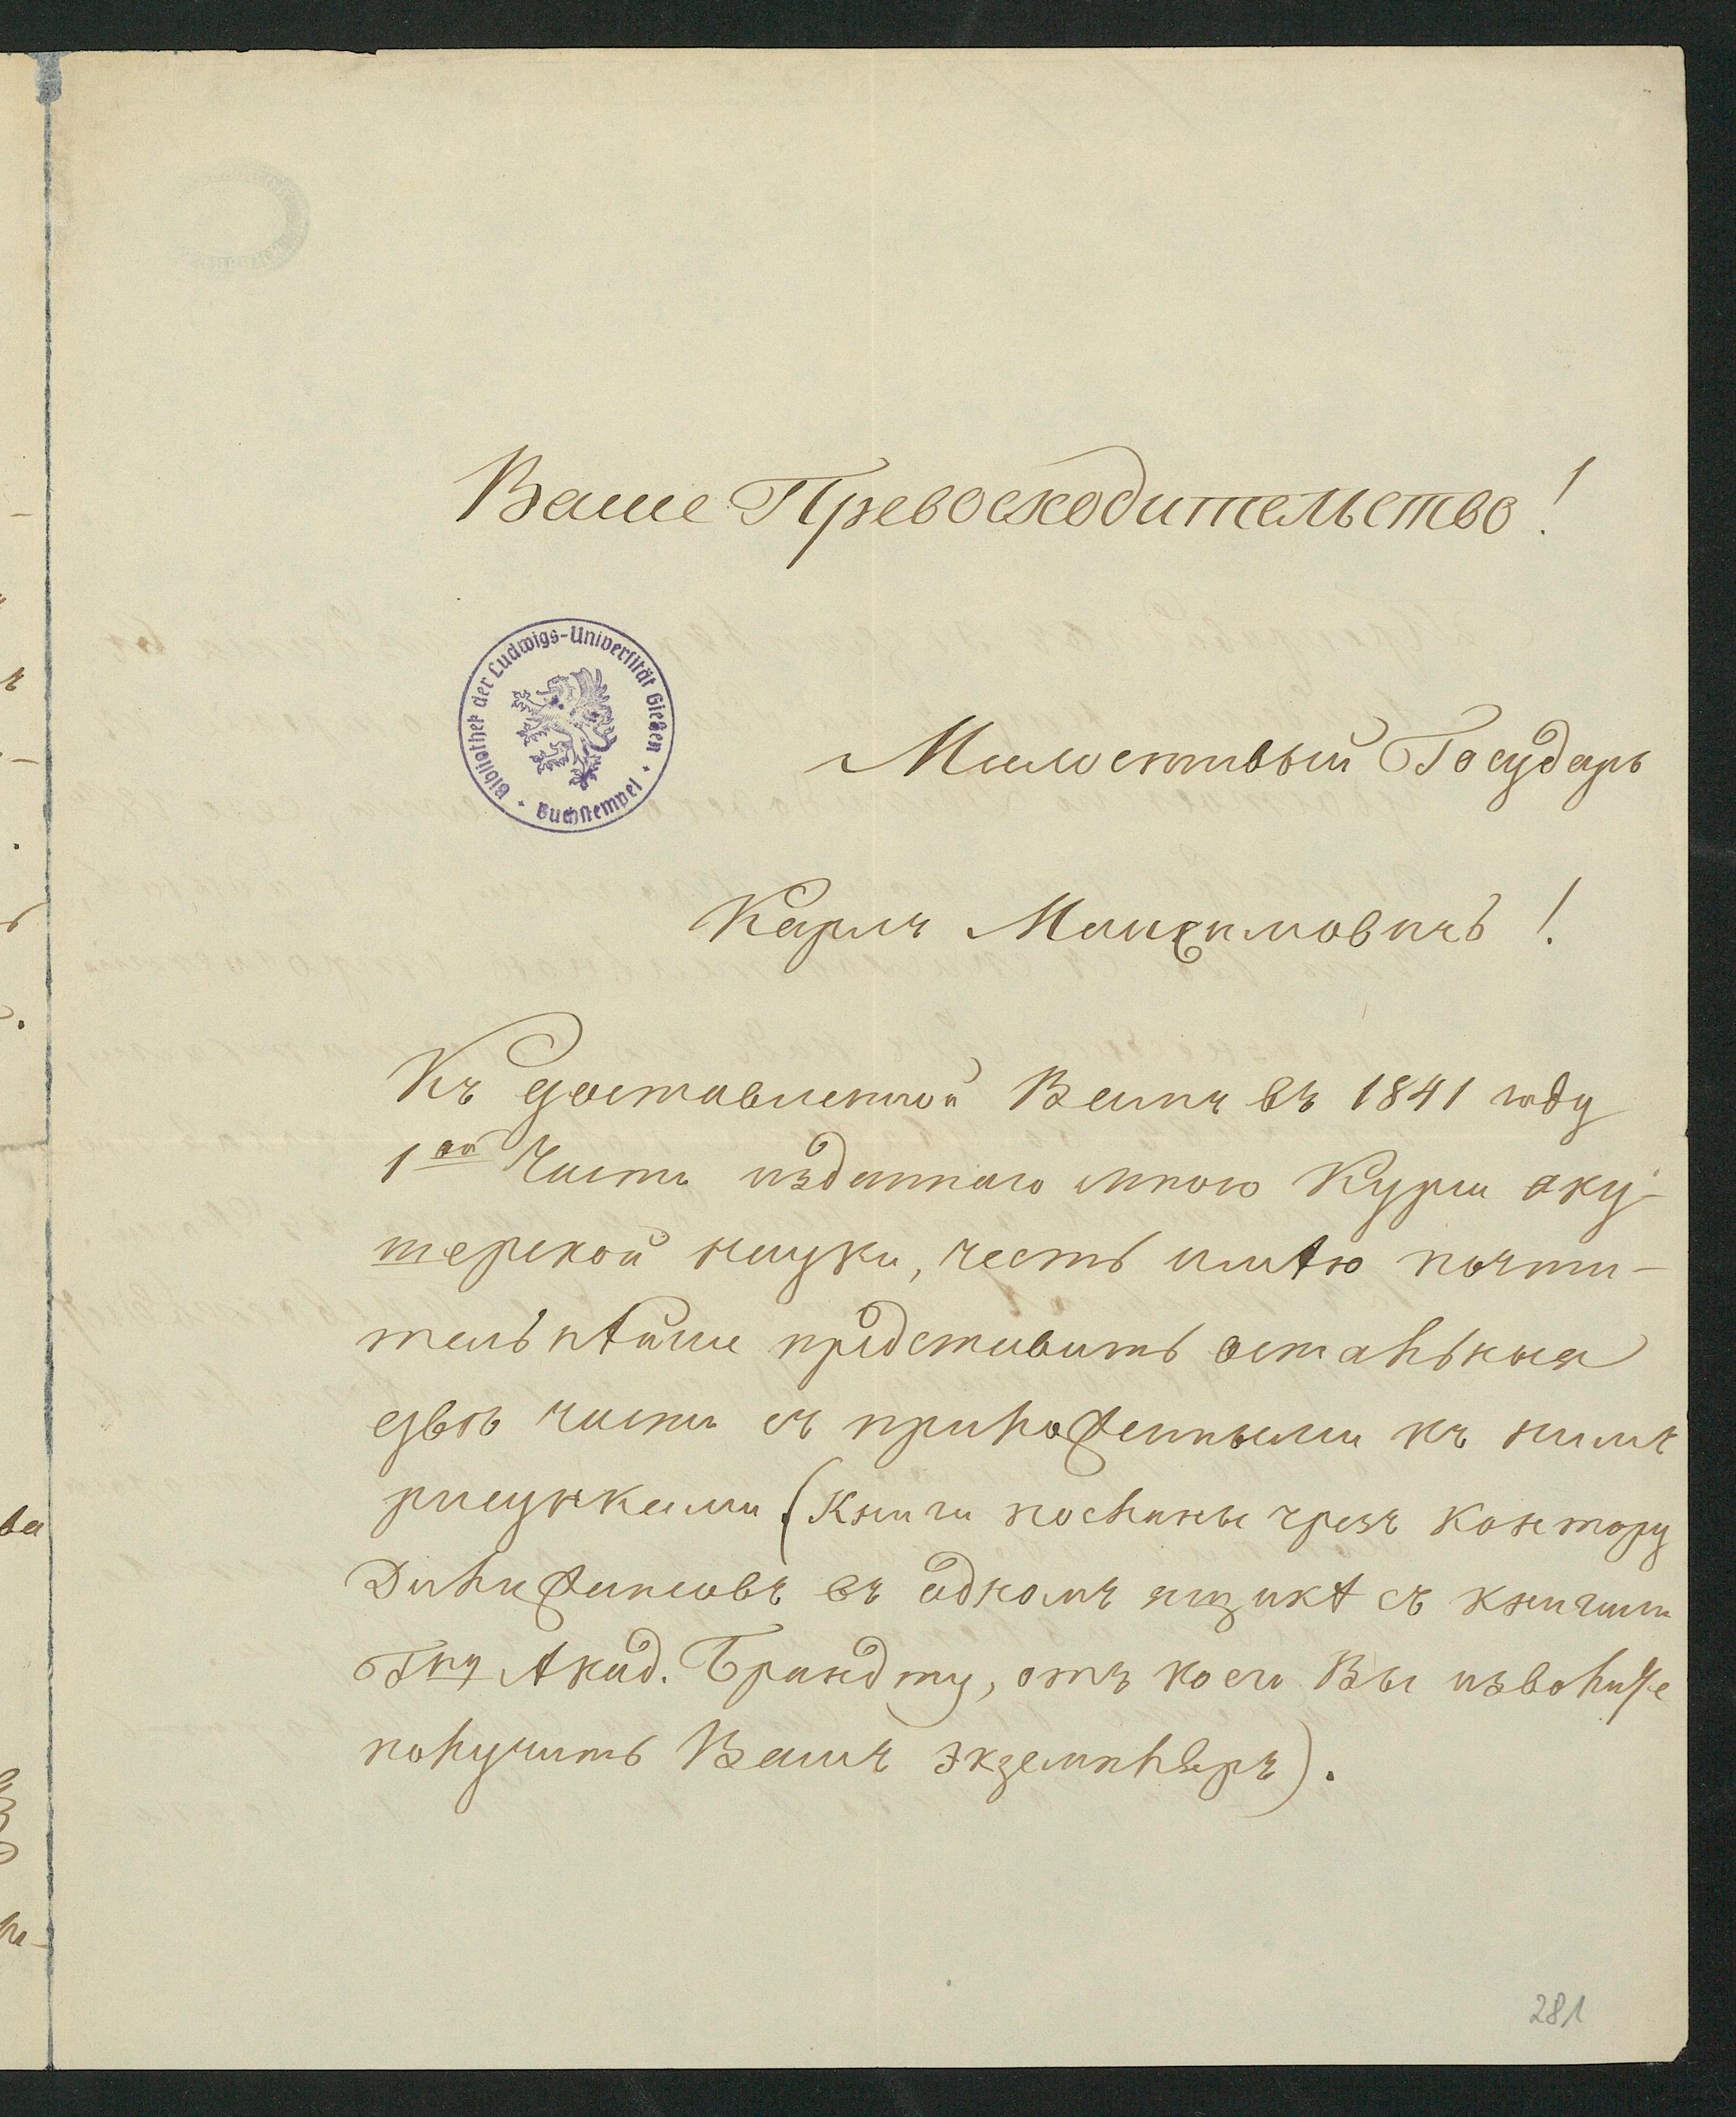 Ваше Превосходительство!
Bibliothek der Ludwigs-Universität Gießen
Buchstempel
Милостивый Государь
Карлъ Максимовичь!
Къ доставленной Вамъ въ 1841 году
1ой Части изданнаго мною Курса аку-
шерской науки, честь имѣю почти-
тельнѣйше представить остальныя
двѣ части съ приложенными къ нимъ
рисунками (Книги посланы чрезъ контору
Дилижансовъ въ одномъ ящикѣ съ книгами
Гну Акад. Брандту, отъ коего Вы изволите
получить Вашъ экземпляръ).
281